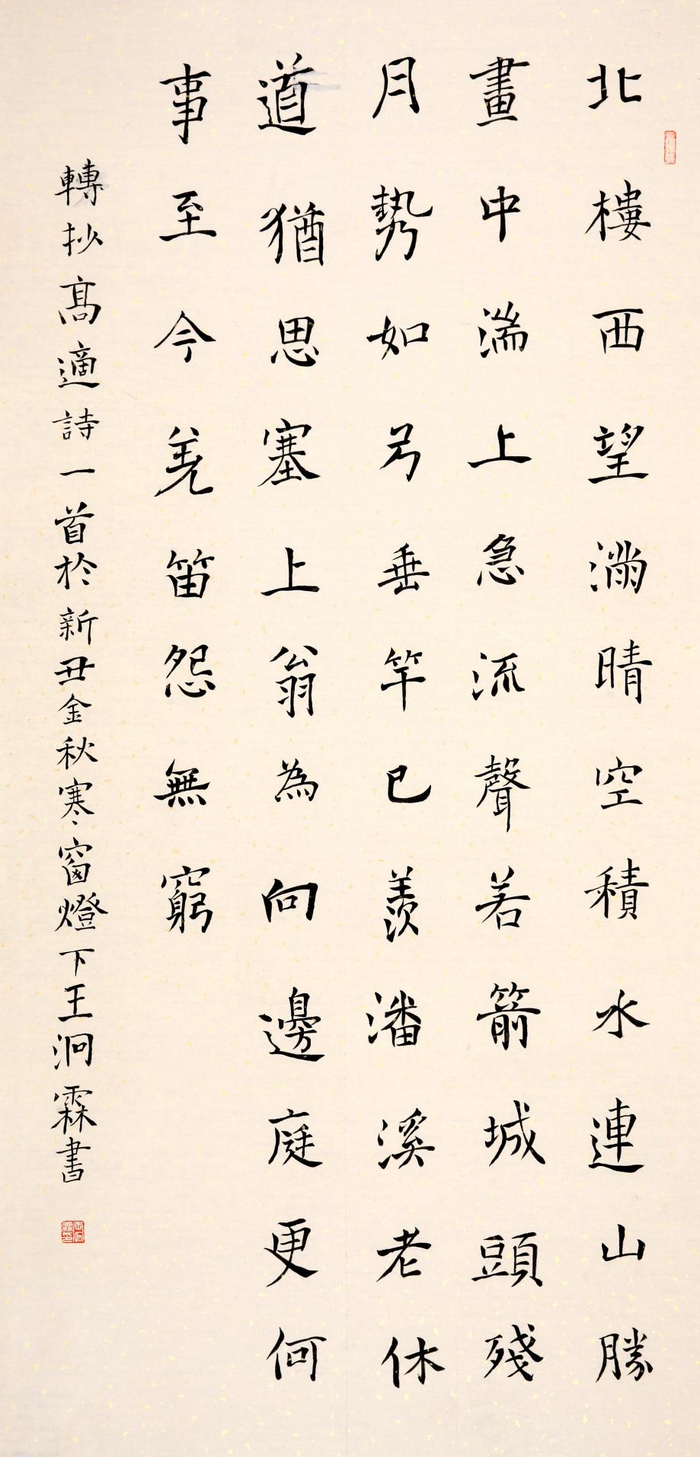 北樓西望滿晴空積水連山勝
畫中湍上急流聲若箭城頭殘
月勢如弓垂竿已羨潘溪老休
道猶思塞上翁為向邊庭更何
事至今羌笛怨無窮
轉抄髙適詩一首於新丑金秋寒窗燈下王泂霖書